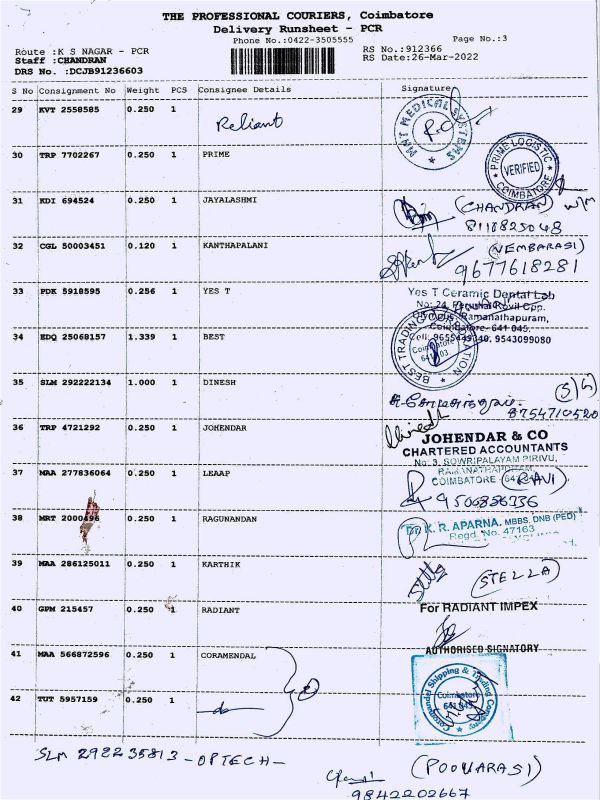 THE PROFESSIONAL COURIERS, Coimbatore
Delivery Runsheet - PCR
Phone No.:0422-3505555
Page No.:3
Route :K S NAGAR - PCR
RS No.:912366
Staff :CHANDRAN
RS Date:26-Mar-2022
DRS No. :DCJB91236603
S No Consignment No Weight PCS Consignee Details Signature
29 KVT 2558585 0.250 1 Reliant
MNT MEDICAL SYSTEMS
30 TRP 7702267 0.250 1 PRIME
PRIME LOGISTIC
VERIFIED
COIMBATORE
31 KDI 694524 0.250 1 JAYALASHMI
(CHANDRAN) W/M
8118825048
32 CGL 50003451 0.120 1 KANTHAPALANI
(VEMBARASI)
9677618281
33 PDK 5918595 0.256 1 YES T
Yes T Ceramic Dental Lab
No: 24, Perumal Kovil Opp.
Ramanathapuram,
Coimbatore- 641 045.
9543099080
34 EDQ 25068157 1.339 1 BEST
BEST TRADING CORPORATION
Coimbatore
35 SLM 292222134 1.000 1 DINESH
8754710520
36 TRP 4721292 0.250 1 JOHENDAR
Dinesh
JOHENDAR & CO
CHARTERED ACCOUNTANTS
No. 3, SOWRIPALAYAM PIRIVU,
RAMANATHAPURAM,
COIMBATORE
37 MAA 277836064 0.250 1 LEAAP
(RAVI)
9500886336
38 MRT 2000496 0.250 1 RAGUNANDAN
Dr. K. R. APARNA. MBBS, DNB (PED)
Regd. No. 47163
39 MAA 286125011 0.250 1 KARTHIK
Stella
(STELLA)
40 GPM 215457 0.250 1 RADIANT
For RADIANT IMPEX
AUTHORISED SIGNATORY
41 MAA 566872596 0.250 1 CORAMENDAL
Coromandel Shipping & Trading Company
Coimbatore
641 045
42 TUT 5957159 0.250 1 do
SLM 292235813 - OPTECH -
(POOVARASI)
9842202667